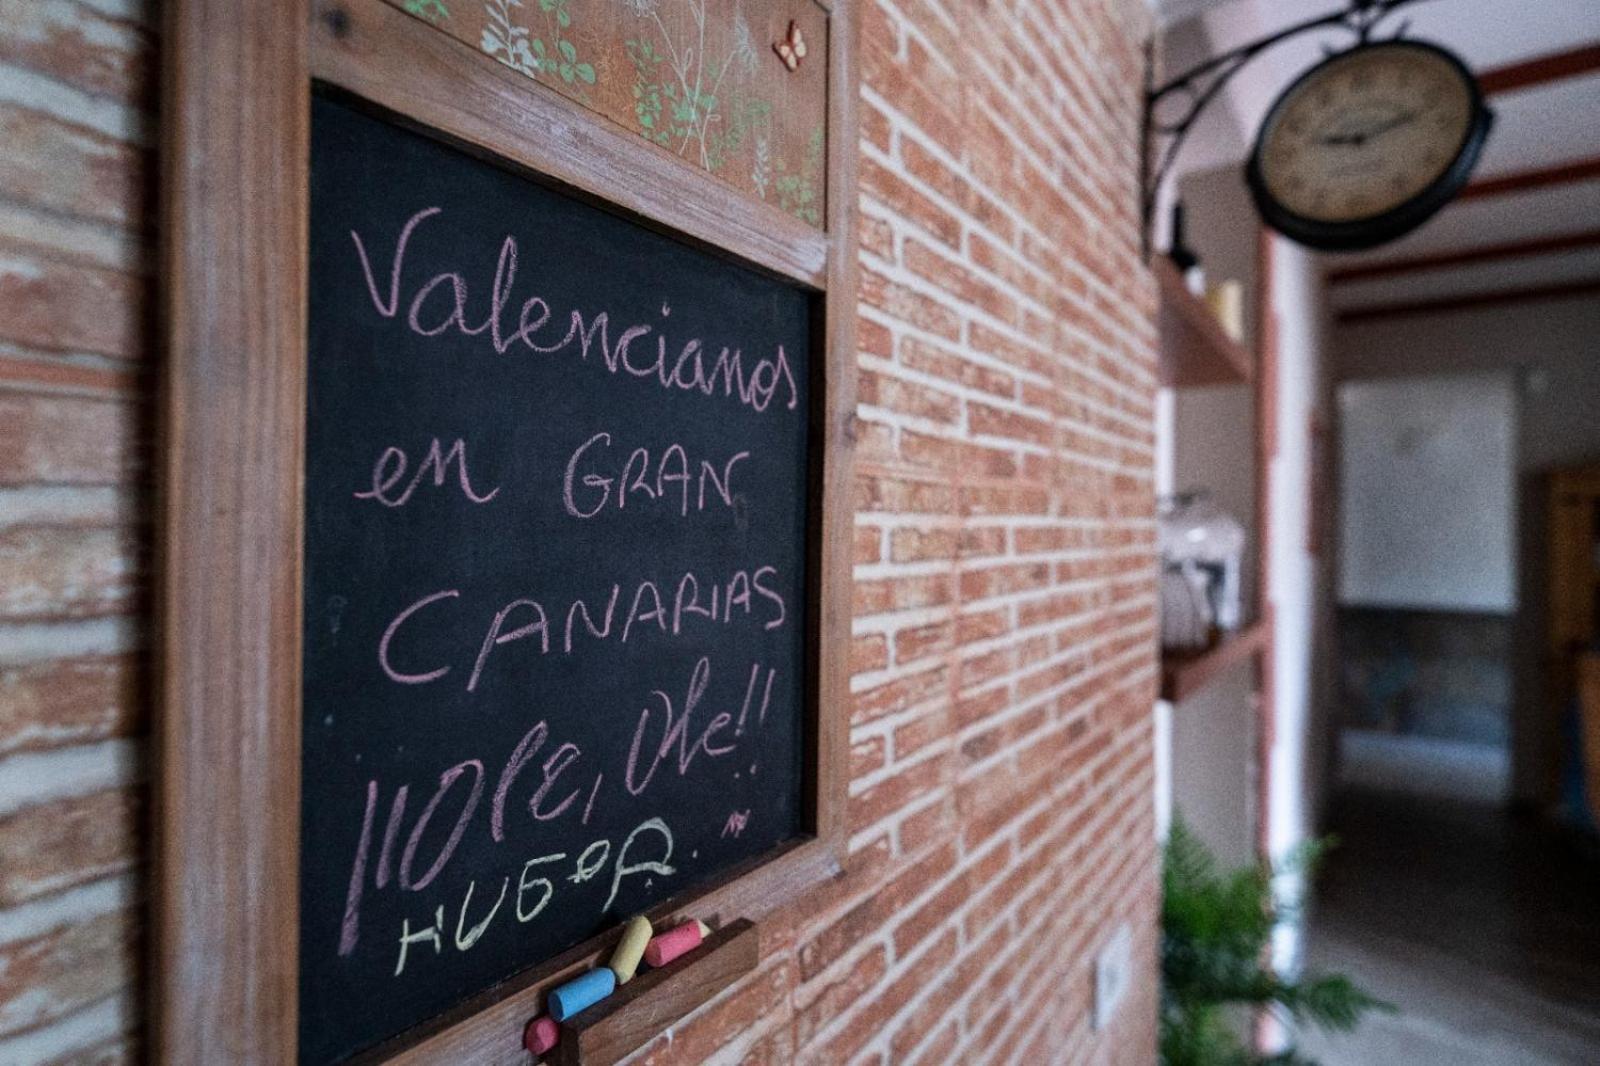 Valencianos
en GRAN
CANARIAS
¡¡OlE, Ole!!